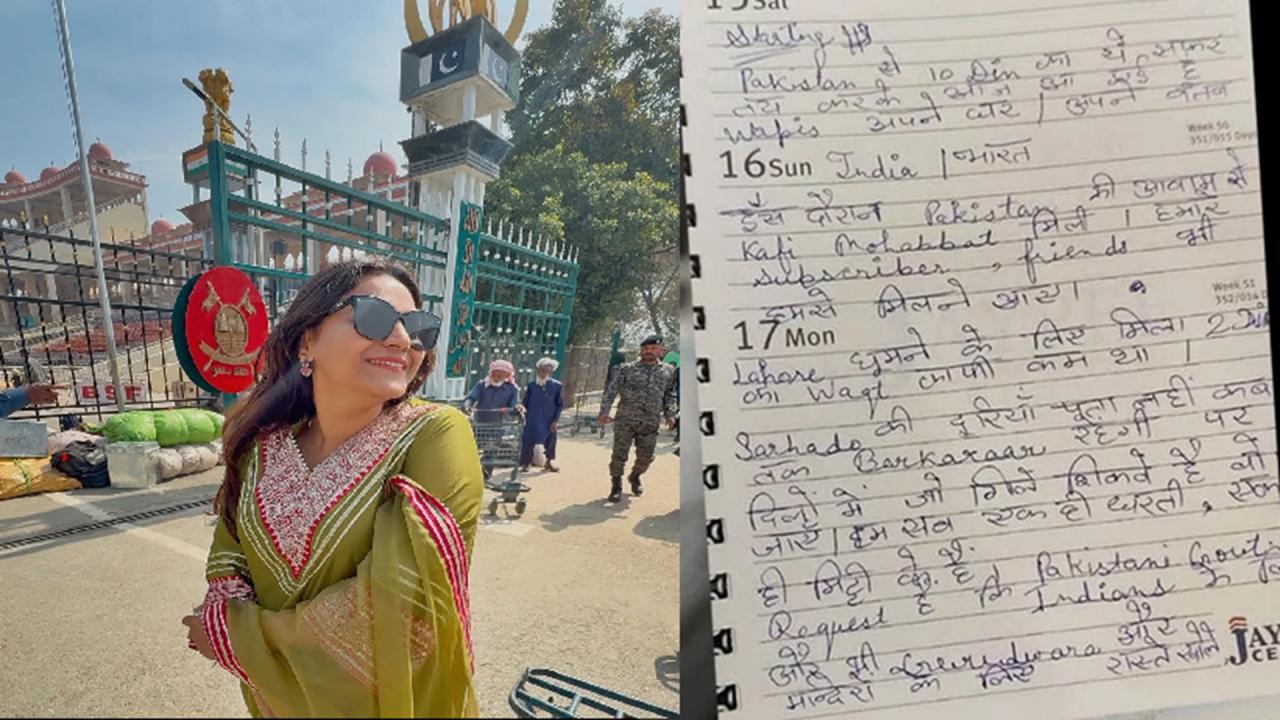 BSF
15 Sat
Starting
Pakistan से 10 Din का ये सफर
तय करके आज आ गई है
Wapis अपने घर | अपने वतन
Week 50
16 Sun India | भारत
इस दौरान Pakistan की आवाम से
Kafi Mohabbat मिली । हमारे
subscriber, friends भी
हमसे मिलने आए।
Week 51
17 Mon
Lahore घूमने के लिए मिला 2 Din
का Waqt काफी कम था ।
Sarhado की दूरियाँ पता नहीं कब
तक Barkaraar रहेगी पर
दिलों में जो गिले शिकवे है वो
जाएँ | हम सब एक ही धरती, एक
ही मिट्टी के है। Pakistani Govt.
Request है कि Indians के
और भी Gurudwara और
मन्दिरों के लिए रास्ते खोले
JAY
CE